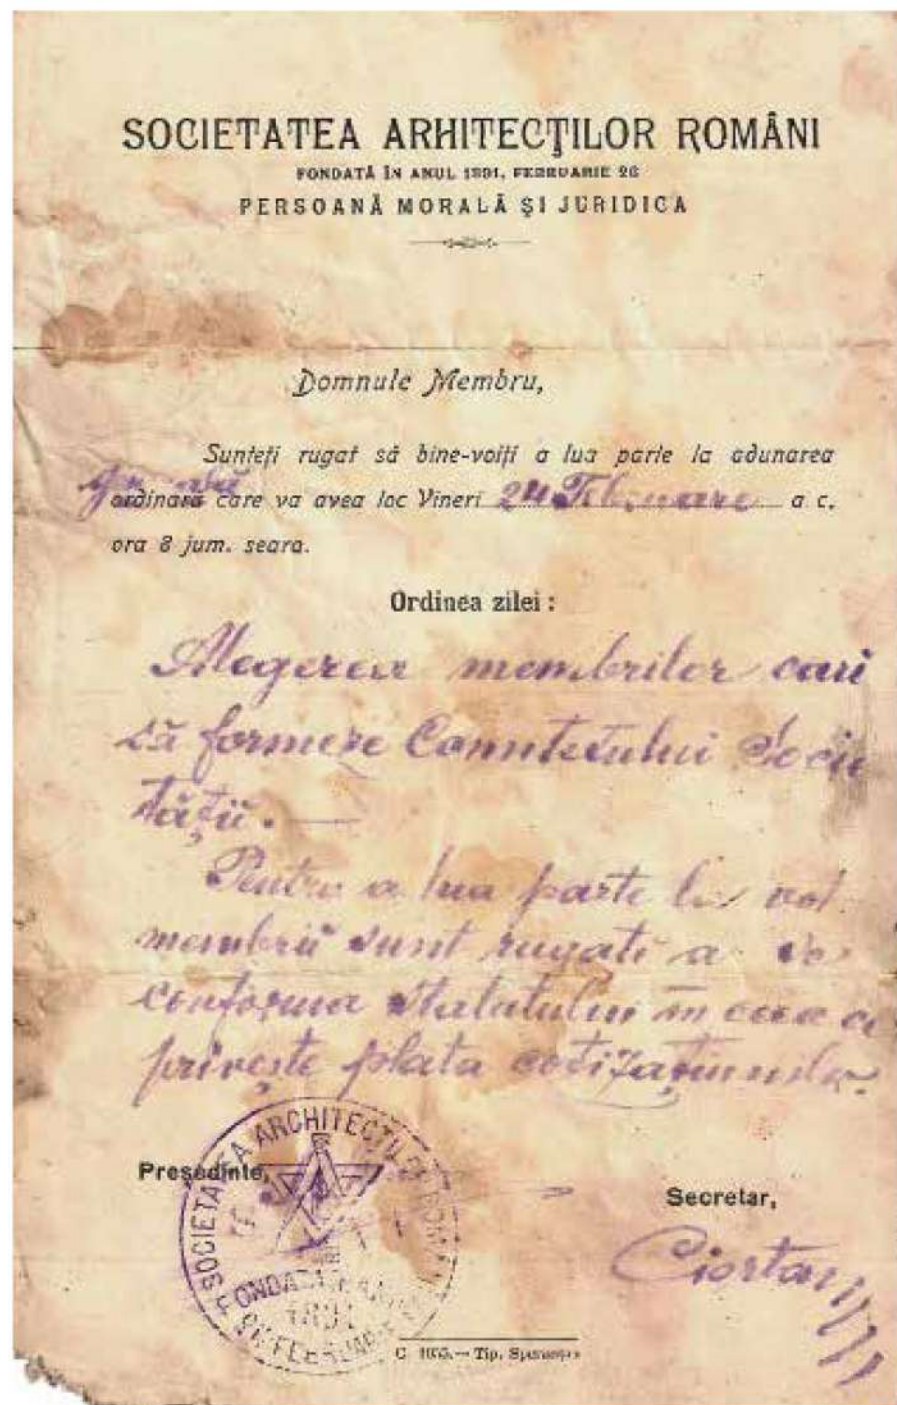 SOCIETATEA ARHITECŢILOR ROMÂNI
FONDATĂ ÎN ANUL 1891, FEBRUARIE 26
PERSOANĂ MORALĂ ŞI JURIDICA
Domnule Membru,
Sunteţi rugat să bine-voiţi a lua parte la adunarea
ordinară care va avea loc Vineri 24 Februarie a c.
ora 8 jum. seara.
Ordinea zilei :
Alegerea membrilor cari
să formeze Comitetului Socie
tăţii. —
Pentru a lua parte la vot
membrii sunt rugati a se
conforma statutului în ceea ce
priveşte plata cotizaţiunilor.
Preşedinte,
SOCIETATEA ARCHITECŢILOR ROMÂNI
FONDATĂ
1891
26 FEBRUARIE
Secretar,
Ciortan
Tip. Speranţa